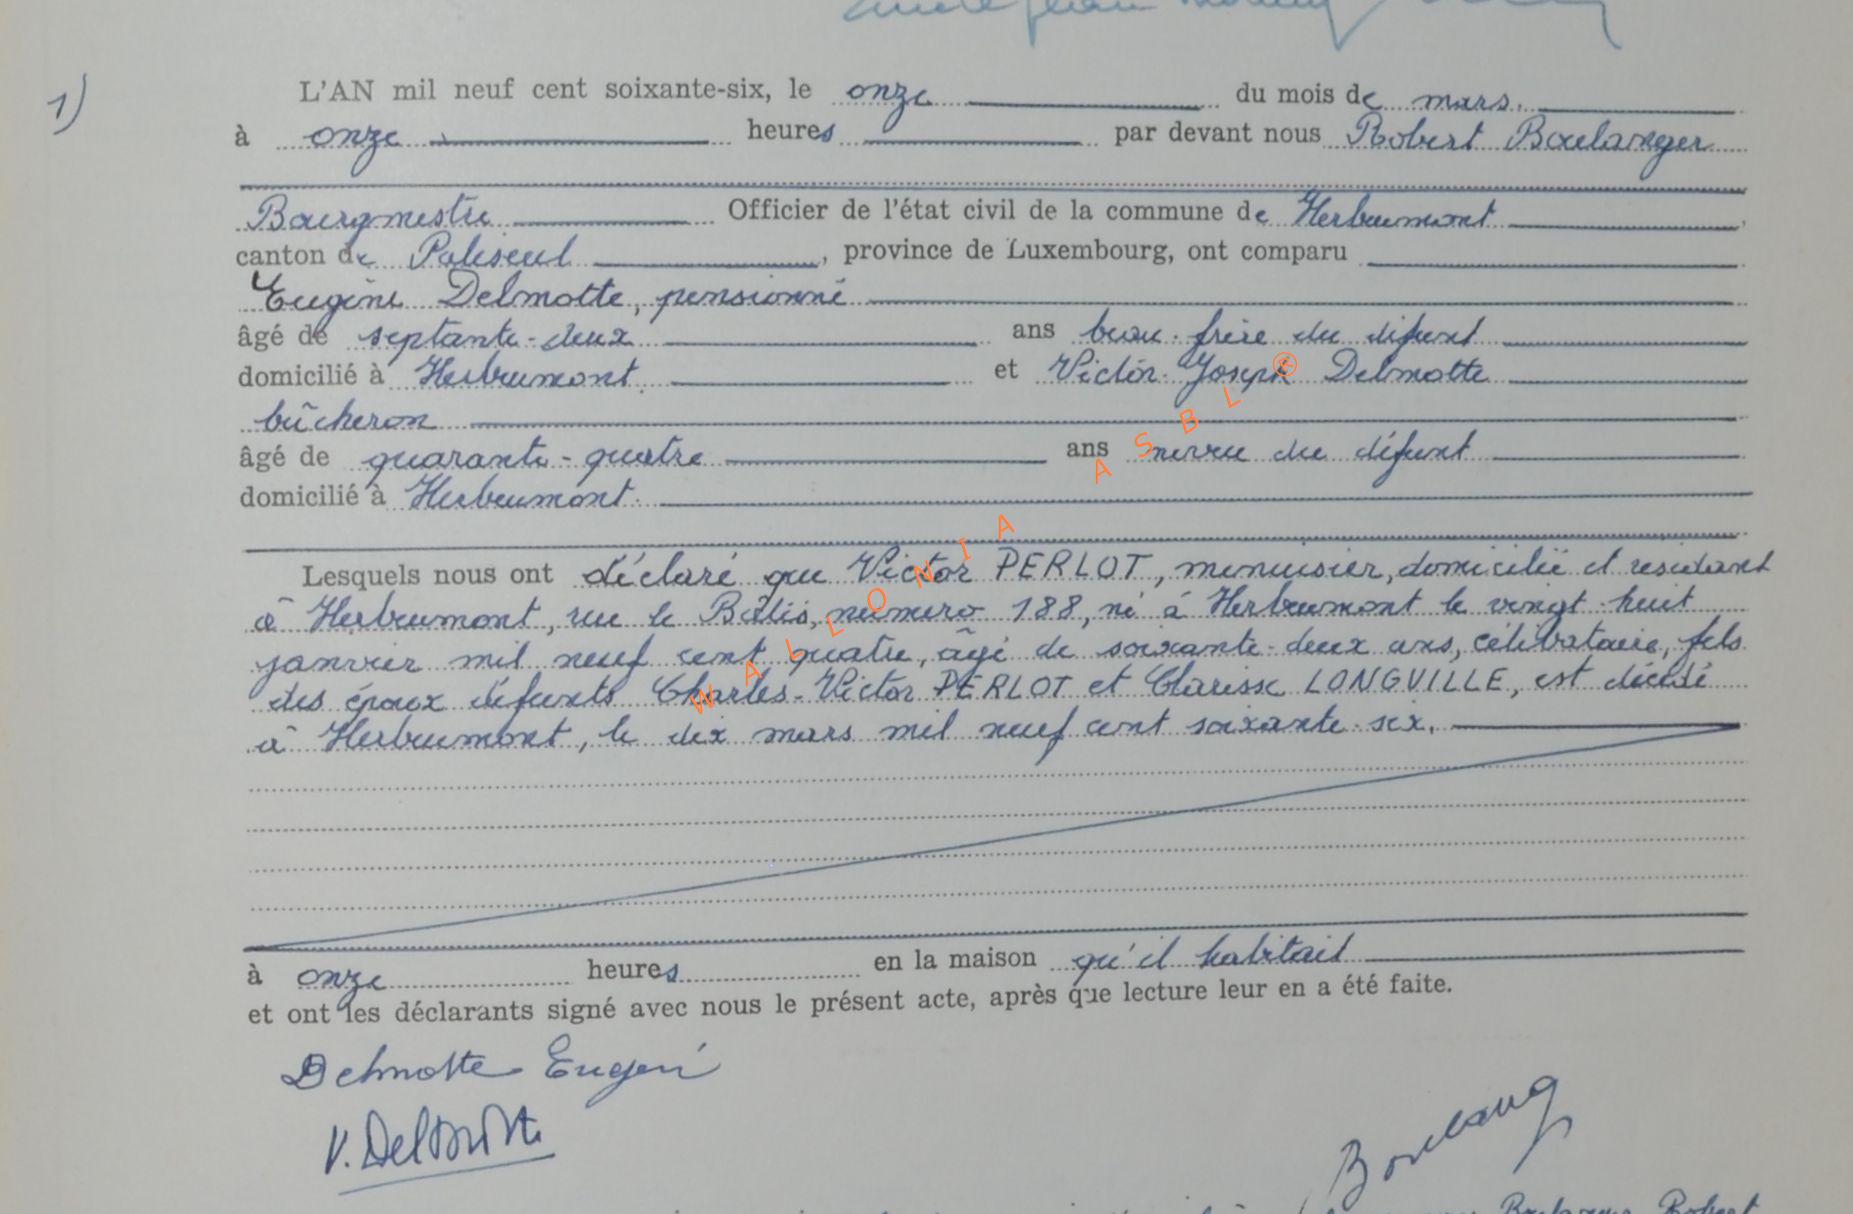 1)
L'AN mil neuf cent soixante-six, le onze du mois de mars.
à onze heures par devant nous Robert Boulanger
Bourgmestre Officier de l'état civil de la commune de Herbeumont
canton de Paliseul, province de Luxembourg, ont comparu
Eugène Delmotte, pensionné
âgé de septante-deux ans beau-frère du défunt
domicilié à Herbeumont et Victor-Joseph Delmotte
bûcheron
âgé de quarante-quatre ans neveu du défunt
domicilié à Herbeumont.
Lesquels nous ont déclaré que Victor PERLOT, menuisier, domicilié et résidant
à Herbeumont, rue le numéro 188, né à Herbeumont le vingt-huit
janvier mil neuf cent quatre, âgé de soixante-deux ans, célibataire, fils
des époux défunts Charles-Victor PERLOT et Clarisse LONGVILLE, est décédé
à Herbeumont, le dix mars mil neuf cent soixante-six.
à onze heures en la maison qu'il habitait
et ont les déclarants signé avec nous le présent acte, après que lecture leur en a été faite.
Delmotte Eugène
V. Delmotte
Boulang
Robert
WALLONIA ASBL®